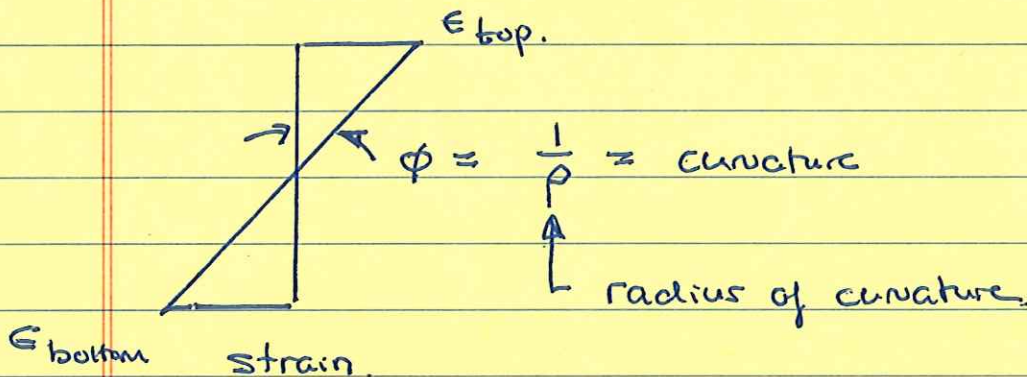 ε top.
φ = 1/ρ = curvature
radius of curvature.
ε bottom
strain.